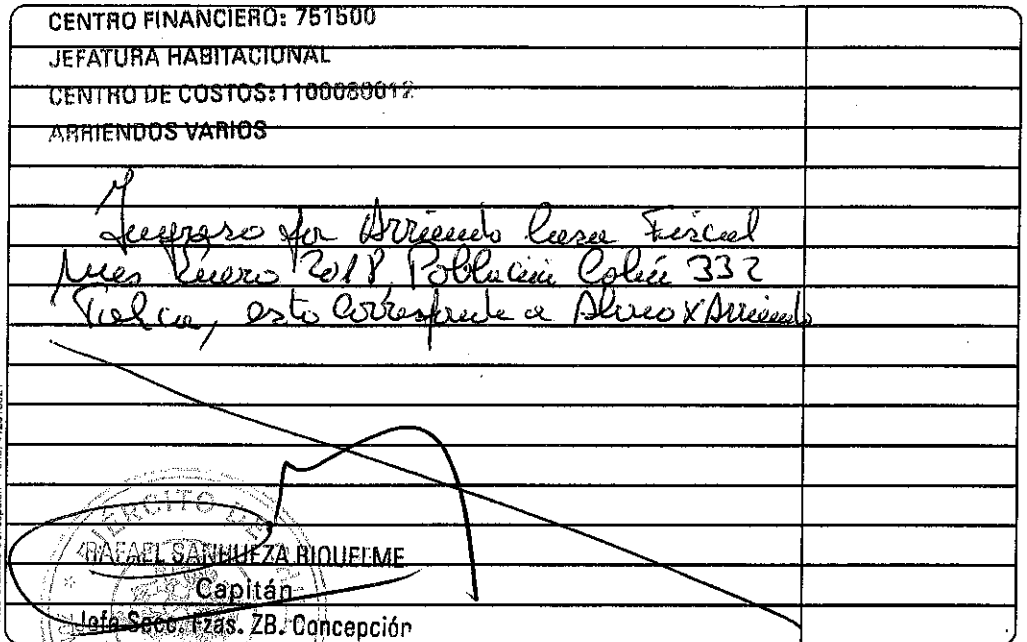 CENTRO FINANCIERO: 751500
JEFATURA HABITACIONAL
CENTRO DE COSTOS: 1100080012
ARRIENDOS VARIOS
Ingreso por Arriendo Casa Fiscal
Mes Enero 2018, Población Colín 332
Talca, esto corresponde a Abono x Arriendo
EJERCITO DE
RAFAEL SANHUEZA RIQUELME
Capitán
Jefe Secc. Fzas. ZB. Concepción